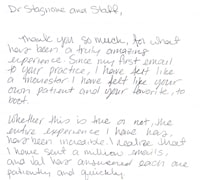 Dr Stagnone and Staff,
Thank you so much, for what
has been a truly amazing
experience. Since my first email
to your practice, I have felt like
a
I have felt like your
own patient and your favorite, to
boot.
Whether this is true or not, the
entire experience I have had,
has been incredible. I realize that
I have sent a million emails,
and Val has answered each one
patiently and quickly.